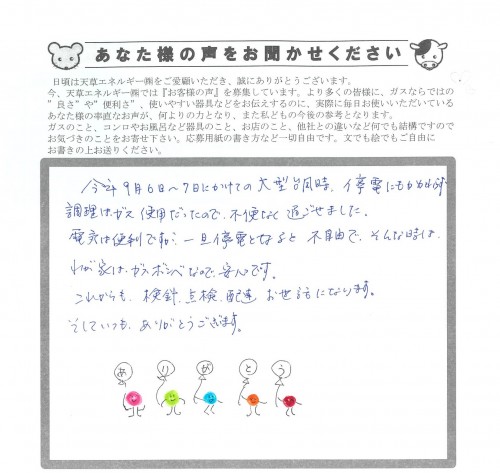 あなた様の声をお聞かせください
日頃は天草エネルギー㈱をご愛顧いただき、誠にありがとうございます。
今、天草エネルギー㈱では『お客様の声』を募集しています。より多くの皆様に、ガスならではの
”良さ”や”便利さ”、使いやすい器具などをお伝えするのに、実際に毎日お使いいただいている
あなた様の率直なお声が、何よりの力となり、また私どもの今後の参考となります。
ガスのこと、コンロやお風呂など器具のこと、お店のこと、他社との違いなど何でも結構ですので
お気づきのことをお寄せ下さい。応募用紙の書き方など一切自由です。文でも絵でもご自由に
お書きの上お送りください。
今年9月6日〜7日にかけての大型台風時、停電にもかかわらず
調理はガス使用だったので、不便なく過ごせました。
電気は便利ですが、一旦停電となると不自由で、そんな時は、
わが家はガスボンベなので、安心です。
これからも、検針、点検、配達お世話になります。
そしていつも、ありがとうございます。
あ り が と う